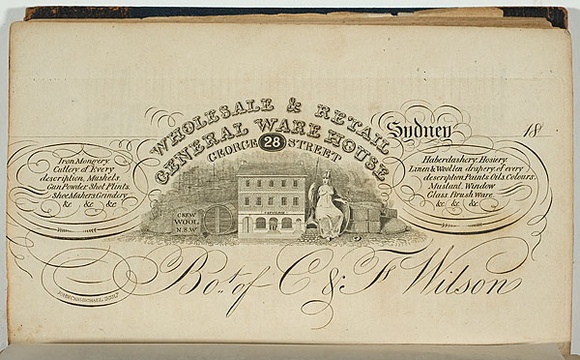 WHOLESALE & RETAIL
GENERAL WAREHOUSE
GEORGE 28 STREET
Sydney 18
Iron Mongery
Cutlery of Every
description, Muskets,
Gun Powder Shot Flints,
Shoe Makers Grindery
&c &c &c
Haberdashery, Hosiery,
Linen & Woollen drapery of every
description Paints, Oils, Colours,
Mustard, Window
Glass, Brush ware,
&c &c &c
C & FW
WOOL
N.S.W
Bot. of C & F Wilson